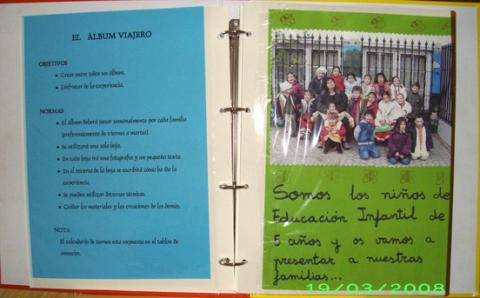 EL ÁLBUM VIAJERO
OBJETIVOS
• Crear entre todos un álbum.
• Disfrutar de la experiencia.
NORMAS
• El álbum deberá pasar semanalmente por cada familia
(preferentemente de viernes a martes).
• Se utilizará una sola hoja.
• En cada hoja irá una fotografía y un pequeño texto.
• En el reverso de la hoja se escribirá cómo ha ido la
experiencia.
• Se pueden utilizar diversas técnicas.
• Cuidar los materiales y las creaciones de los demás.
NOTA
El calendario de turnos está expuesto en el tablón de
anuncios.
Somos los niños de
Educación Infantil de
5 años y os vamos a
presentar a nuestras
familias...
19/03/2008